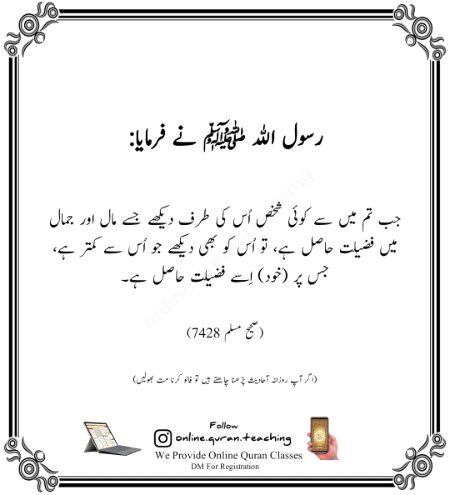 رسول اللہ ﷺ نے فرمایا:
جب تم میں سے کوئی شخص اُس کی طرف دیکھے جسے مال اور جمال
میں فضیلت حاصل ہے، تو اُس کو بھی دیکھے جو اُس سے کمتر ہے،
جس پر (خود) اِسے فضیلت حاصل ہے۔
(صحیح مسلم 7428)
(اگر آپ روزانہ آحادیث پڑھنا چاھتے ہیں تو فالو کرنا مت بھولیں)
Follow
online.quran.teaching
We Provide Online Quran Classes
DM For Registration